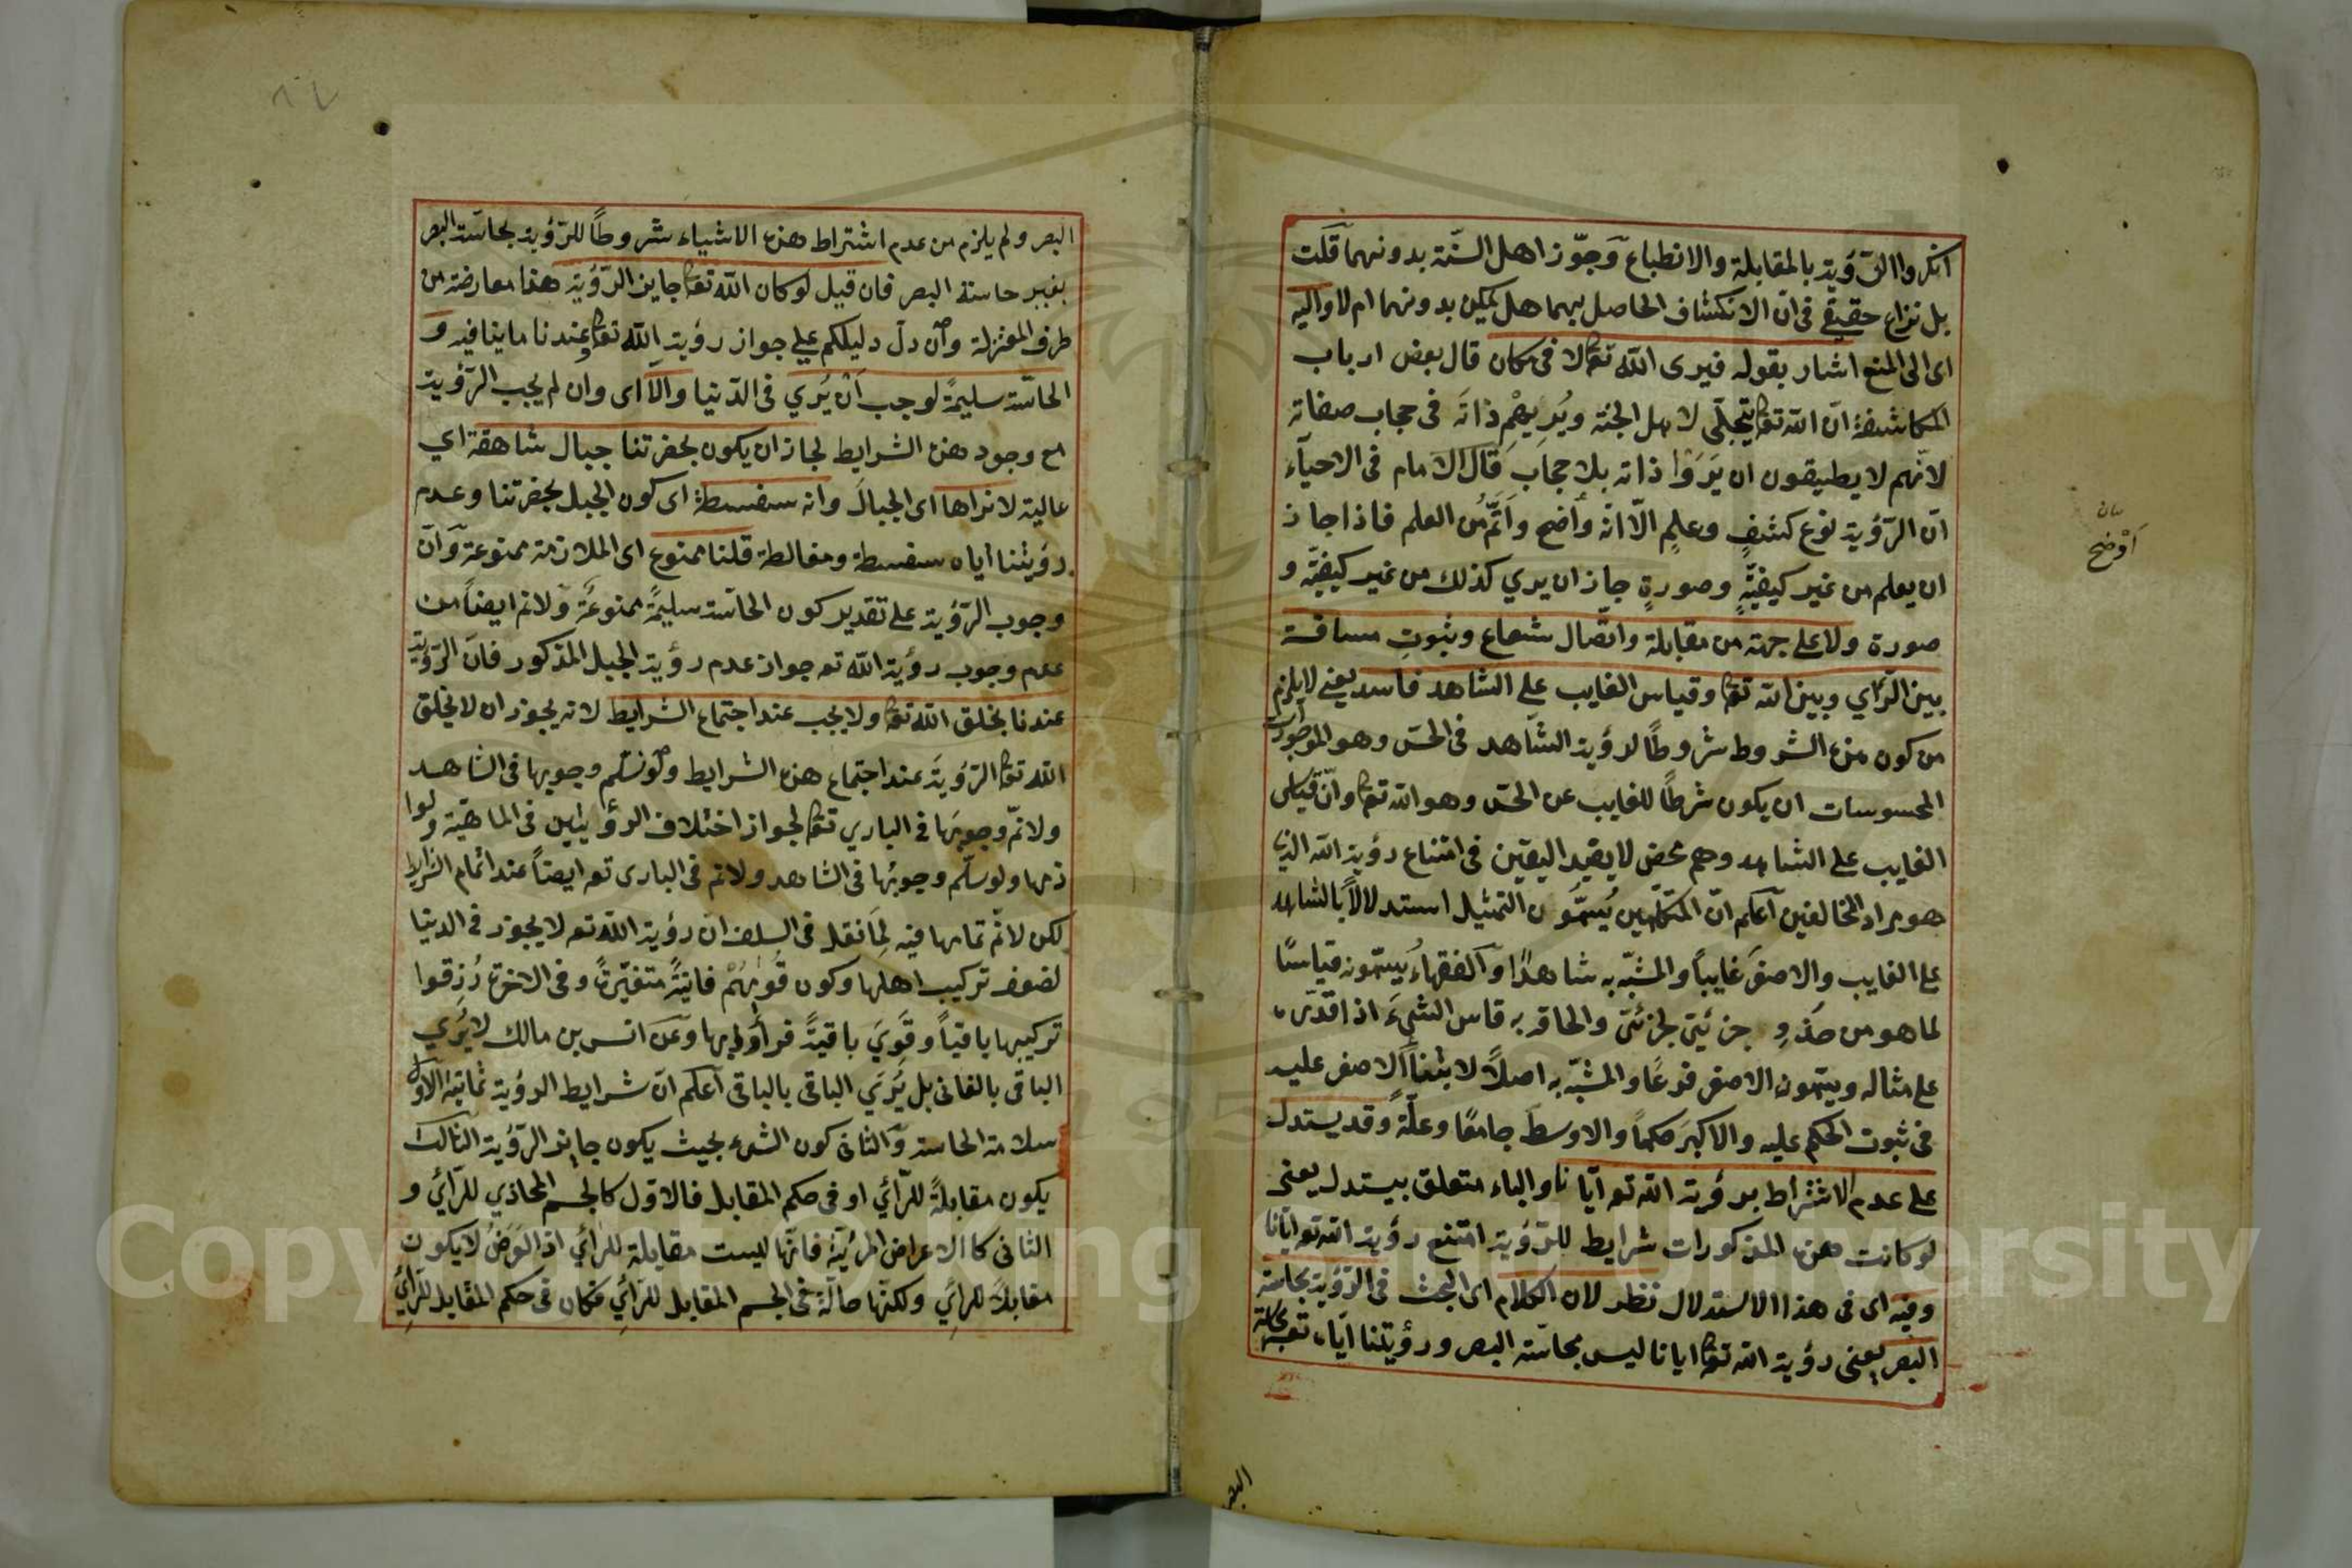 انكروا الرؤية بالمقابلة والانطباع وجوّز اهل السنّة بدونهما قلت
بل نزاع حقيقي في انّ الانكشاف الحاصل بهما هل يمكن بدونهما ام لا واليه
اى الى المنع اشار بقوله فيرى الله تعالى لا فى مكان قال بعض ارباب
المكاشفة انّ الله تعالى يتجلّى لاهل الجنة ويُريهم ذاته فى حجاب صفاته
لانّهم لا يطيقون ان يَرَوْا ذاته بلا حجاب قال الامام فى الاحياء
انّ الرّؤية نوع كشفٍ وعلمٍ الّا انّه وأضح واَتَمُّ من العلم فاذا جاز
ان يعلم من غير كيفيّةٍ وصورةٍ جاز ان يرى كذلك من غير كيفيّة و
صورة ولا على جهة من مقابلة واتّصال شعاع وثبوتِ مسافة
بين الرّاي وبين الله تعالى وقياس الغايب على الشاهد فاسد يعنى لا يلزم
من كون هذه الشروط شروطًا لرؤية الشّاهد فى الحسّ وهو الموجودات
المحسوسات ان يكون شرطًا للغايب عن الحسّ وهو الله تعالى وانّ قياس
الغايب على الشاهد وهم محض لا يفيد اليقين فى امتناع رؤية الله الذى
هو مراد المخالفين اعلم انّ المتكلّمين يُسمُّون التمثيل استدلالاً بالشاهد
على الغايب والاصغر غايباً والمشبّه به شاهدًا والفقهاءُ يُسمّونه قياسًا
لما هو من حذو جزئىّ لجزئىّ والحاقه به قاس الشىءَ اذا قدّره
على مثاله ويسمّون الاصغر فرعًا والمشبّه به اصلاً لابتناء الاصغر عليه
فى ثبوت الحكم عليه والاكبرَ حكماً والاوسطَ جامعًا وعلّةً وقد يستدل
على عدم الاشتراط برؤية الله تع ايّانا والباء متعلق بيستدل يعنى
لو كانت هذه المذكورات شرايط للرّؤية امتنع رؤية الله تع ايّانا
وفيه اى فى هذا الاستدلال نظر لان الكلام اى البحث فى الرّؤية بحاسة
البصر يعنى رؤية الله تعالى ايانا ليس بحاسّة البصر ورؤيتنا ايّاه تع بحاسة
بيان
أوضح
البصر
البصر ولم يلزم من عدم اشتراط هذه الاشياء شروطًا للرّؤية بحاسّة البصر
بغير حاسة البصر فان قيل لو كان الله تعالى جايز الرّؤية هذا معارضة من
طرف المعتزلة وان دلّ دليلكم على جواز رؤية الله تعالى وعندنا ما ينافيه و
الحاسّة سليمةً لوجب اَنْ يُرَي فى الدّنيا والّا اى وان لم يجب الرّؤية
مع وجود هذه الشرايط لجاز ان يكون بحضرتنا جبال شاهقة اي
عالية لا نراها اى الجبالَ وانه سفسطة اى كون الجبل بحضرتنا وعدم
رؤيتنا اياه سفسطة ومغالطة قلنا ممنوع اى الملازمة ممنوعة وانّ
وجوب الرّؤية على تقدير كون الحاسّة سليمةً ممنوعةً ولا نم ايضاً من
عدم وجوب رؤية الله تع جواز عدم رؤية الجبل المذكور فانّ الرّؤية
عندنا بخلق الله تعالى ولا يجب عند اجتماع الشرايط لانه يجوز ان لا يخلق
الله تعالى الرّؤيةَ عند اجتماع هذه الشرايط ولو نسلّم وجوبها فى الشاهد
ولا نمّ وجوبَها فى الباري تعالى لجواز اختلاف الرؤيتين فى الماهيّة ولوا
زمها ولو سلّم وجوبُها فى الشاهد ولا نم فى البارى تع ايضاً عند اتمام الشرايط
لكن لا نمّ تمامها فيه لِمَا نقل فى السلف انّ رؤية الله تع لا يجوز فى الدنيا
لضعف تركيب اهلها وكون قُوٰيهُمْ فانيةً متغيّرةً وفى الاخرة رُزِقوا
تركيبها باقياً وقُوًي باقيةً فرأَوْا بها وعن انس بن مالك لا يُرَي
الباقى بالفانى بل يُرَي الباقى بالباقى اعلم انّ شرايط الرؤية ثمانية الاوّل
سلامة الحاسة والثانى كون الشىء بحيث يكون جايز الرّؤية الثالث
يكون مقابلةً للرّائي او فى حكم المقابل فالاوّل كالجسم المحاذي للرّائي و
الثانى كالاعراض المرئيّة فانّها ليست مقابلة للرائي اذ العَرَضُ لا يكون
مقابلاً للرائي ولكنّها حالّة فى الجسم المقابل للرّائي فكان فى حكم المقابل للرّائي
Copyright © King Saud University
1957